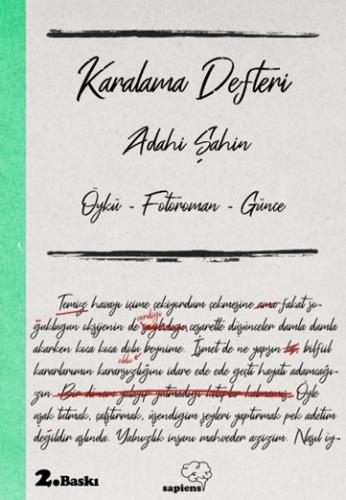 Karalama Defteri
Adahi Şahin
Öykü - Fotoroman - Günce
Temiz havayı içime çekiyordum çekmesine ama fakat so-
verdiği
ğukluğun oksijenin de cesaretle düşünceler damla damla
akarken koca koca dolu beynime. İsmet de ne yapsın bilfiil
oldu
kararlarımın kararsızlığını idare ede ede geçti hayatı adamcağı-
zın. Bir dönem yatıp yatmadığı kitaplar kalmamış. Öyle
uşak tutmak, çalıştırmak, üşendiğim şeyleri yaptırmak pek adetim
değildir aslında. Yalnızlık insanı mahveder azizim. Nasıl iy-
2.Baskı
sapiens